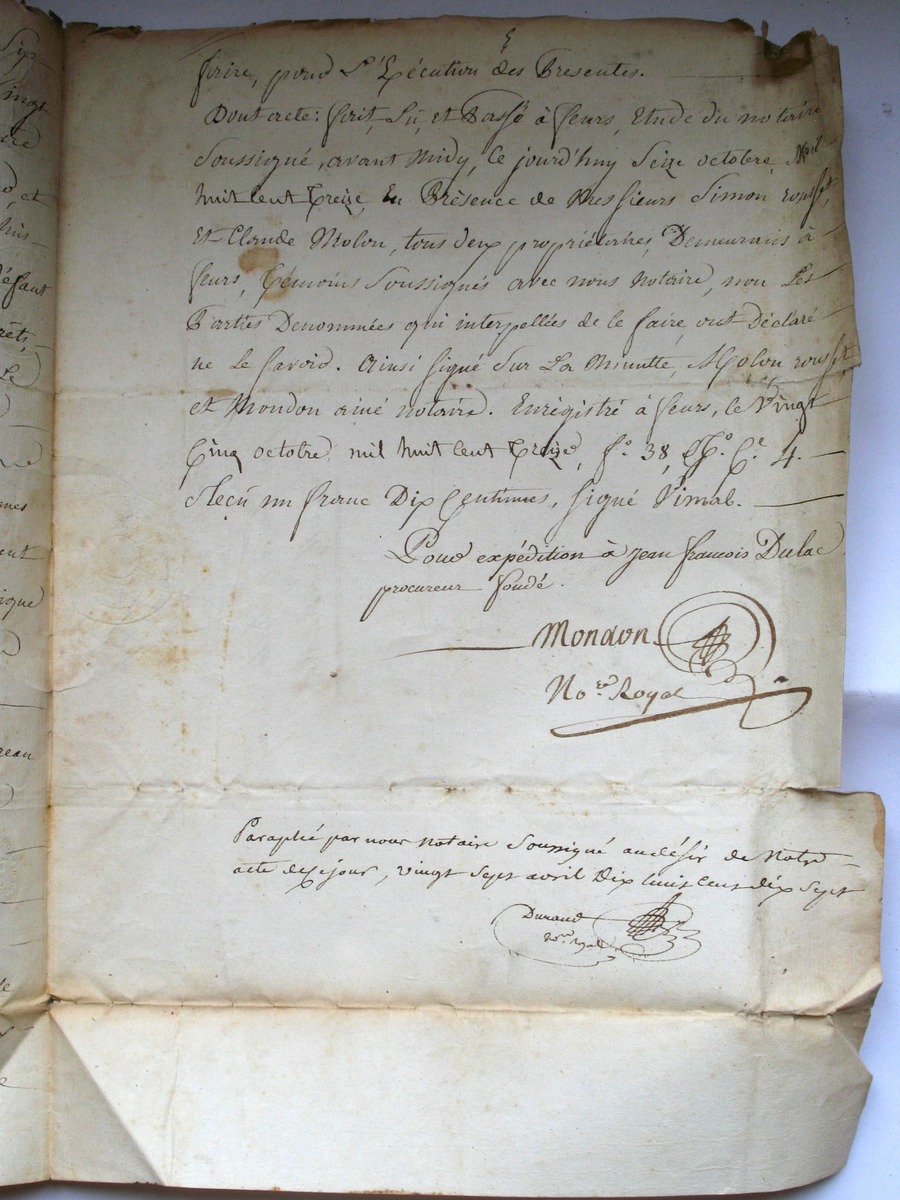 faire, pour L'Exécution des Presentes.
Dont acte: fait, Lû, et Passé à feurs, Etude du notaire
Soussigné, avant midy, le jourd'huy Seize octobre, Mil
huit cent treize, En Présence de Messieurs Simon rousset,
Et Claude Molon, tous deux propriétaires, Demeurans à
feurs, Témoins Soussignés avec nous Notaire, non Les
Parties Denommées qui interpellées de le faire, ont Déclaré
ne Le Savoir. Ainsi Signé Sur La Minutte, Molon rousset
et Mondon ainé notaire. Enrégistré à feurs, le Vingt
Cinq octobre mil huit cent treize, f.º 38, C.e 4.
Reçu un franc Dix Centimes, Signé Vimal.
Pour expédition à Jean françois Dulac
procureur fondé.
Mondon
No.re Royal
Paraphé par nous Notaire Soussigné au désir de Notre
acte de ce jour, vingt Sept avril Dix huit cent dix Sept
Durand
No.re royal